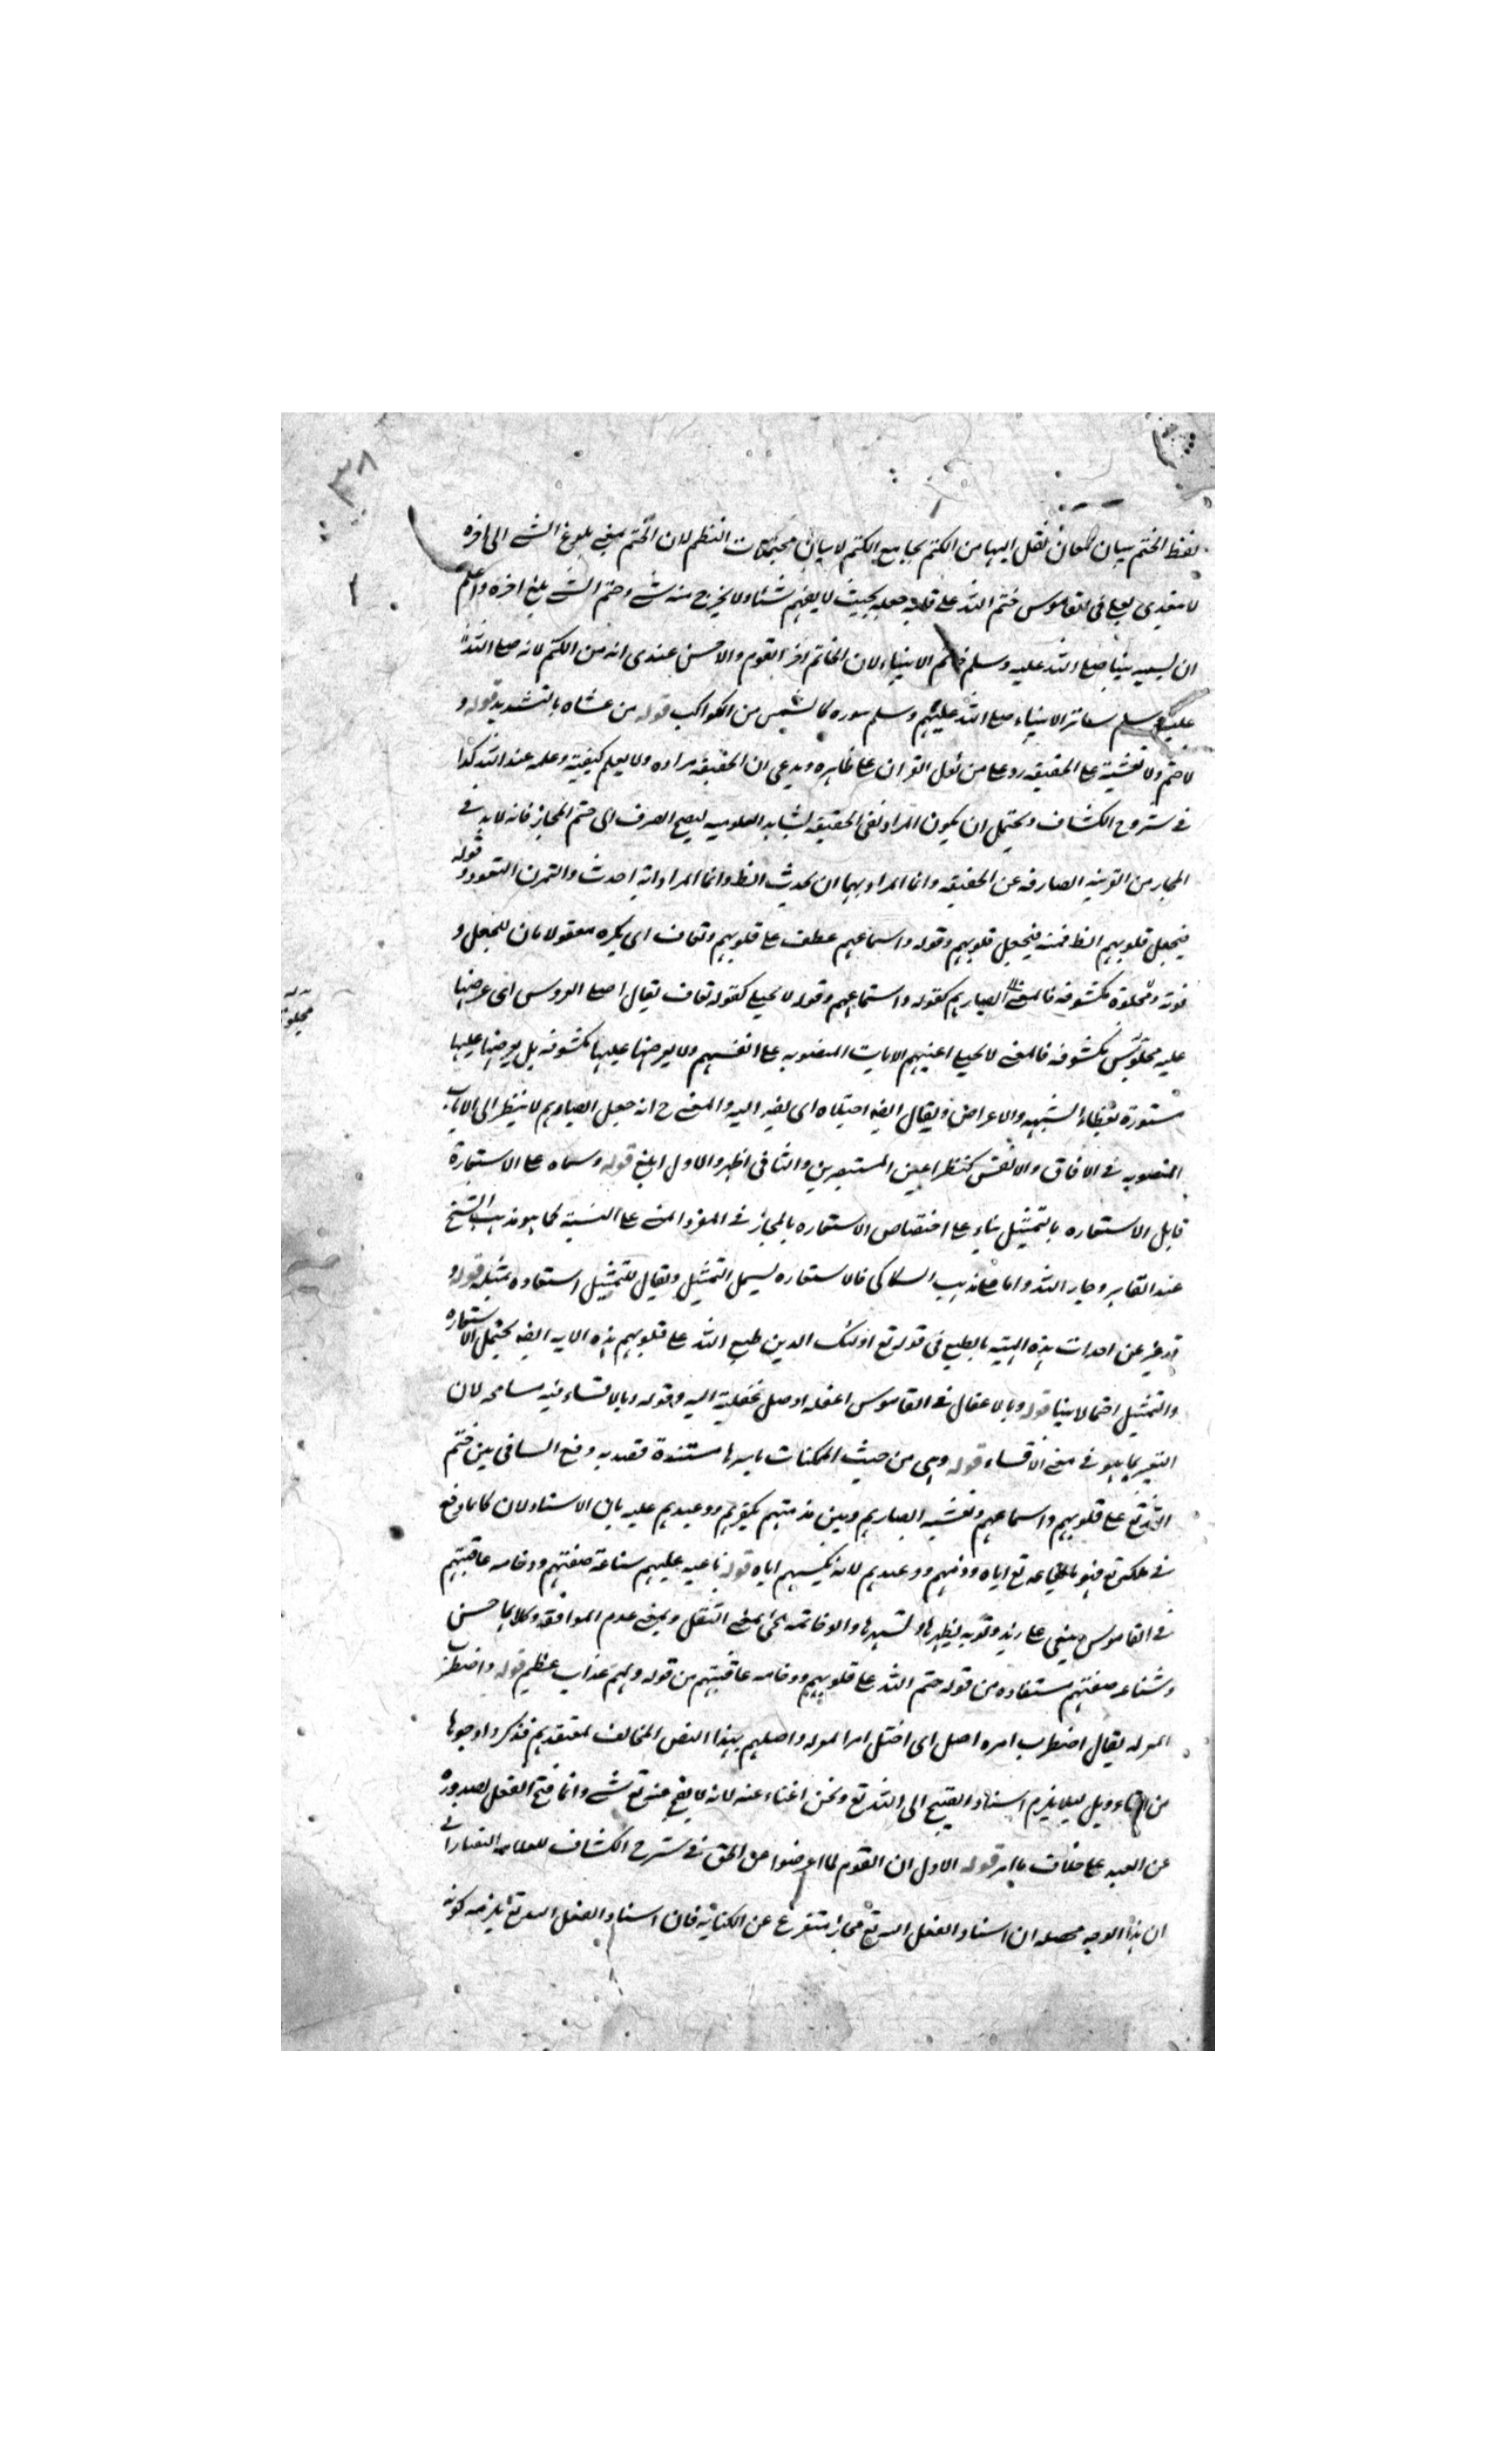 ٣٨
لفظ الختم بيان لمعان نقل اليها من الكتم بجامع الكتم لا بيان محتملات النظم لان الختم بمعنى بلوغ الشئ الى اخره
لا متعدى بعلى فى القاموس ختم الله على قلبه جعله بحيث لا يفهم شئا ولا يخرج منه شئ وختم الشئ بلغ اخره واعلم
ان تسميه نبينا صلى الله عليه وسلم خاتم الانبياء لان الخاتم اخر القوم والاحسن عندى انه من الكتم لانه صلى الله
عليه وسلم ساتر الانبياء صلى الله عليهم وسلم سوره كالشمس من الكواكب قوله من غشاه بالتشديد قوله و
لا ختم ولا تغشية على الحقيقه رد على من ئول القران على ظاهره ويدعى ان الحقيقه مراده ولا يعلم كيفيته وعلمه عند الله كذا
فى شروح الكشاف ويحتمل ان يكون المراد نفى الحقيقه ليصح الصرف الى ختم المجاز فانه لابد فى
المجاز من القرينه الصارفه عن الحقيقه وانما المراد بهما ان يحدث الظ وانما المراد انه احدث والتمرن التعود و قوله
فيجعل قلوبهم الظ فمنه فيجعل قلوبهم وقوله واسماعهم عطف على قلوبهم وتعاف اى يكره معقولا بان للجعل و
قوته ومجلوة مكشوفه فالمعنى ابصارهم كقوله واستماعهم وقوله لا يجلى كقوله تعاف يقال اجلى العروس اى عرضها
عليه مجلوة مكشوفه فالمعنى لا يجلى اعينهم الايات المنصوبه على انفسهم ولا يعرضها عليها مكشوفه بل يعرضها عليها
مستورة بغطاء الشبهه والاعراض ويقال ايضه اجتلاه اى نظر اليه والمعنى ح انه جعل ابصارهم لا ينظر الى الايات
المنصوبه فى الافاق والانفس كنظر اعين المستبصرين والثانى اظهر والاول ابلغ قوله وسماه على الاستعارة
قابل الاستعاره بالتمثيل بناء على اختصاص الاستعاره بالمجاز فى المفرد المبنى على التشبيه كما هو مذهب الشيخ
عبد القاهر وجار الله واما على مذهب السكاكى فالاستعاره يشمل التمثيل ويقال للتمثيل استعاره تمثيله قوله و
قد عبر عن احداث هذه الهيئه بالطبع فى قوله تع اولئك الذين طبع الله على قلوبهم هذه الايه ايضه يحتمل الاستعاره
والتمثيل احتمالا بينا قوله وبالاغفال فى القاموس اغفله اوصل غفلته اليه وقوله وبالاقساء فيه مسامحه لان
التعبير بما هو فى معنى الاقساء قوله وهى من حيث الممكنات باسرها مستندة قصد به دفع التنافى بين ختم
الله تع على قلوبهم واسماعهم وتغشيه ابصارهم وبين مذمتهم بكفرهم ووعيدهم عليه بان الاسناد لان كلما وقع
فى ملكه تع فهو بايقاعه تع اياه وذمهم ووعيدهم لانه بكسبهم اياه قوله ناعيه عليهم شناعة صفتهم ووخامه عاقبتهم
فى القاموس ينعى على زيد ذنوبه يظهرها ويشهرها والوخامه يجئ بمعنى الثقل وبمعنى عدم الموافقه وكلاهما حسن
وشناعه صفتهم مستفاده من قوله ختم الله على قلوبهم ووخامه عاقبتهم من قوله ولهم عذاب عظيم قوله واضطربت
المعتزله يقال اضطرب امره اختل اى اختل امر المعتزله واصلهم بهذا النص المخالف لمعتقدهم فذكروا وجوها
من التاءويل ليلا يلزم اسناد القبيح الى الله تع ونحن اغنياء عنه لانه لا يقبح منه تع شئ وانما قبح الفعل لصدوره
عن العبد على خلاف ما امر قوله الاول ان القوم لما اعرضوا عن الحق فى شرح الكشاف للعلامه التفتازانى
ان هذا الوجه محصله ان اسناد الفعل اليه تع مجاز متفرع عن الكنايه فان اسناد الفعل اليه تع يلزمه كونه